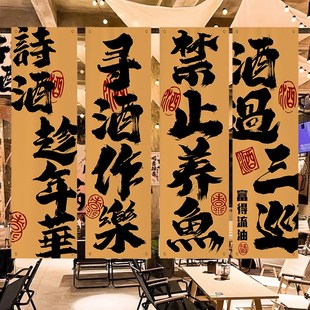 詩酒趁年華
酒
寻酒作樂
酒
禁止养魚
酒
酒過三巡
酒
酒
富得流油